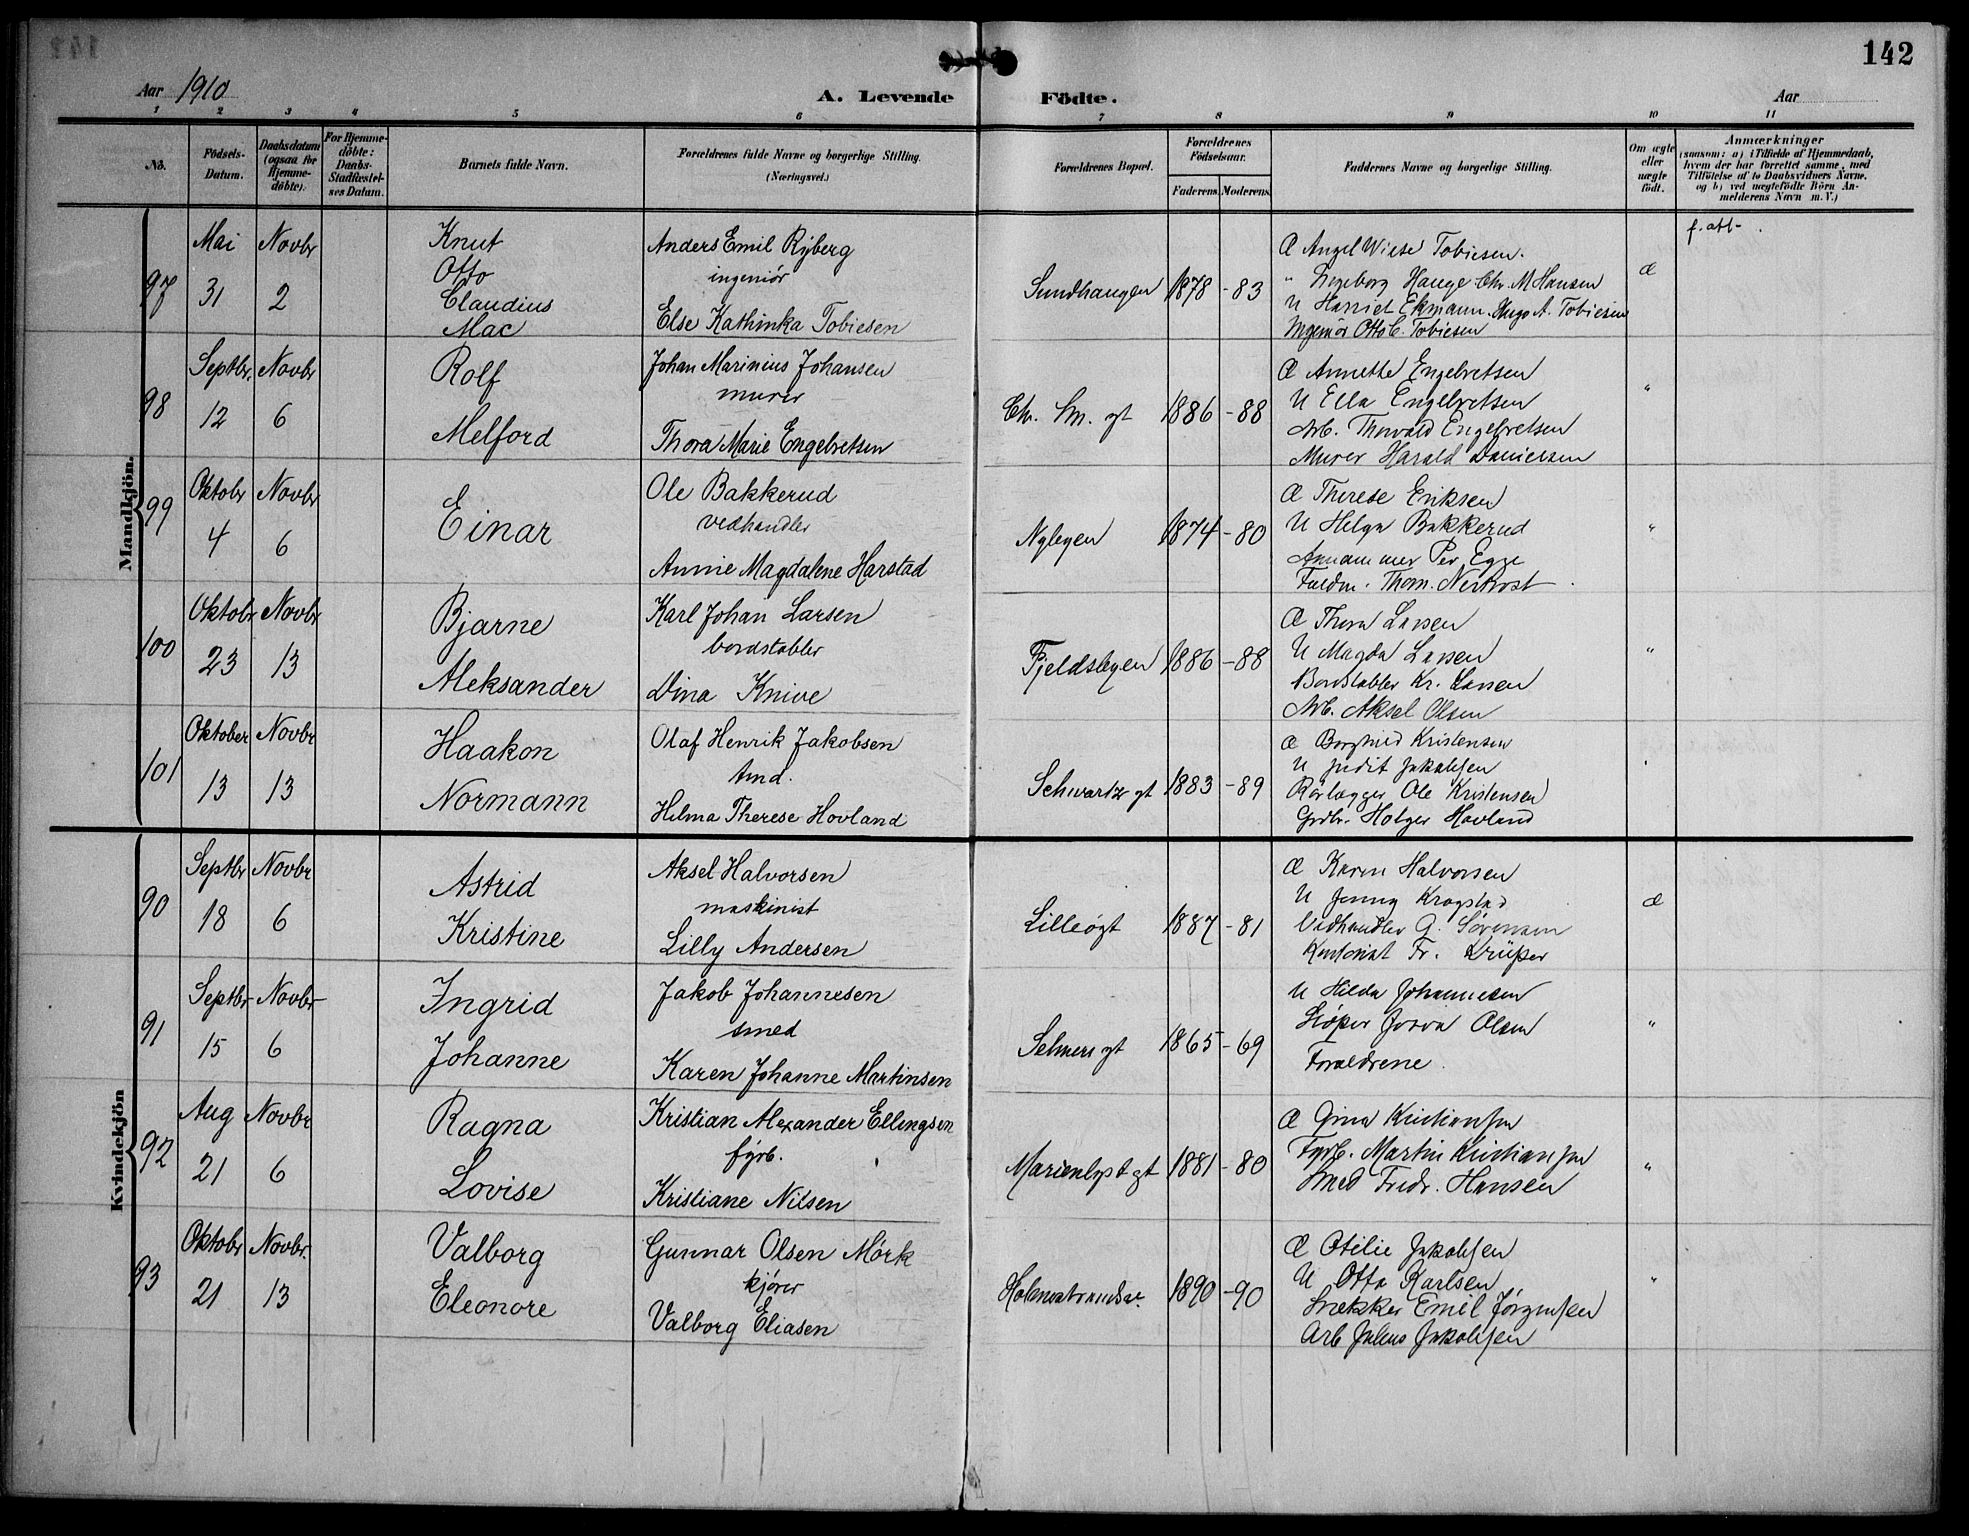 142
Aar 1910
A. Levende Födte.
Aar
1 2 3 4 5 6 7 8 9 10 11
No.
Födsels-Datum.
Daabsdatum (ogsaa for Hjemme-döbte).
For Hjemme-döbte: Daabs-Stadfæstel-ses Datum.
Barnets fulde Navn.
Forældrenes fulde Navne og borgerlige Stilling. (Næringsvei.)
Forældrenes Bopæl.
Forældrenes Födselsaar.
Faderens. Moderens.
Faddernes Navne og borgerlige Stilling.
Om ægte eller uægte födt.
Anmærkninger
(saasom: a) i Tilfælde af Hjemmedaab, hvem der har forrettet samme, med Tilföielse af to Daabsvidners Navne, og b) ved uægtefödte Börn An-melderens Navn m. V.)
Mandkjön.
97 Mai 31 Novbr 2
Knut
Otto
Claudius
Mac
Anders Emil Ryberg
ingeniör
Else Kathinka Tobiesen
Sundhaugen 1878 - 83
Æ Angel Wiese Tobiesen.
" Ingeborg Hauge Chr. M Hansen
U Harriet Ekmann. Hugo A. Tobiesen
Ingeniör Otto C. Tobiesen
Æ
f. att.
98 Septbr. 12 Novbr 6
Rolf
Melford
Johan Marinius Johansen
murer
Thora Marie Engebretsen
Chr. Sm. gt 1886 - 88
Æ Annette Engebretsen
U Ella Engebretsen
Arb. Thorvald Engebretsen
Murer Harald Danielsen
"
99 Oktobr 4 Novbr 6
Einar
Ole Bakkerud
vedhandler
Annie Magdalene Harstad
Nyløgen 1874 - 80
Æ Therese Eriksen
U Helga Bakkerud
Per Egge
Fuldm. Thom.
"
100 Oktobr 23 Novbr 13
Bjarne
Aleksander
Karl Johan Larsen
bordstabler
Dina Knive
Fjeldsløgen 1886 - 88
Æ Thora Larsen
U Magda Larsen
Bordstabler Kr. Larsen
Arb. Aksel Olsen
"
101 Oktober 13 Novbr 13
Haakon
Normann
Olaf Henrik Jakobsen
smd.
Helma Therese Hovland
Schwartz gt 1883 - 89
Æ Borghild Kristensen
U Judit Jakobsen
Rörlægger Ole Kristensen
Grdbr. Holger Hovland
Kvindekjön
90 Septbr 18 Novbr 6
Astrid
Kristine
Aksel Halvorsen
maskinist
Lilly Andersen
Lilleögt 1887 - 81
Æ Karen Halvorsen
U Jenny Krogstad
Vedhandler G. Sörensen
Kontorist Fr. Krüger
Æ
91 Septbr 15 Novbr 6
Ingrid
Johanne
Jakob Johannesen
smed
Karen Johanne Martinsen
Selmers gt 1865 - 69
U Hilda Johannesen
Olsen
Forældrene.
"
92 Aug 21 Novbr 6
Ragna
Lovise
Kristian Alexander Ellingsen
fyrb.
Kristiane Nilsen
Marienlyst gt 1881 - 80
Æ Gina Kristiansen
Fyrb. Martin Kristiansen
Smed Fredr. Hansen
"
93 Oktobr 21 Novbr. 13
Valborg
Eleonore
Gunnar Olsen Mörk
kjörer
Valborg Eliasen
Holmestrandsv. 1890 - 90
Æ Otilie Jakobsen
U Otta Karlsen
Snekker Emil Jörgensen
Arb Julius Jakobsen
"